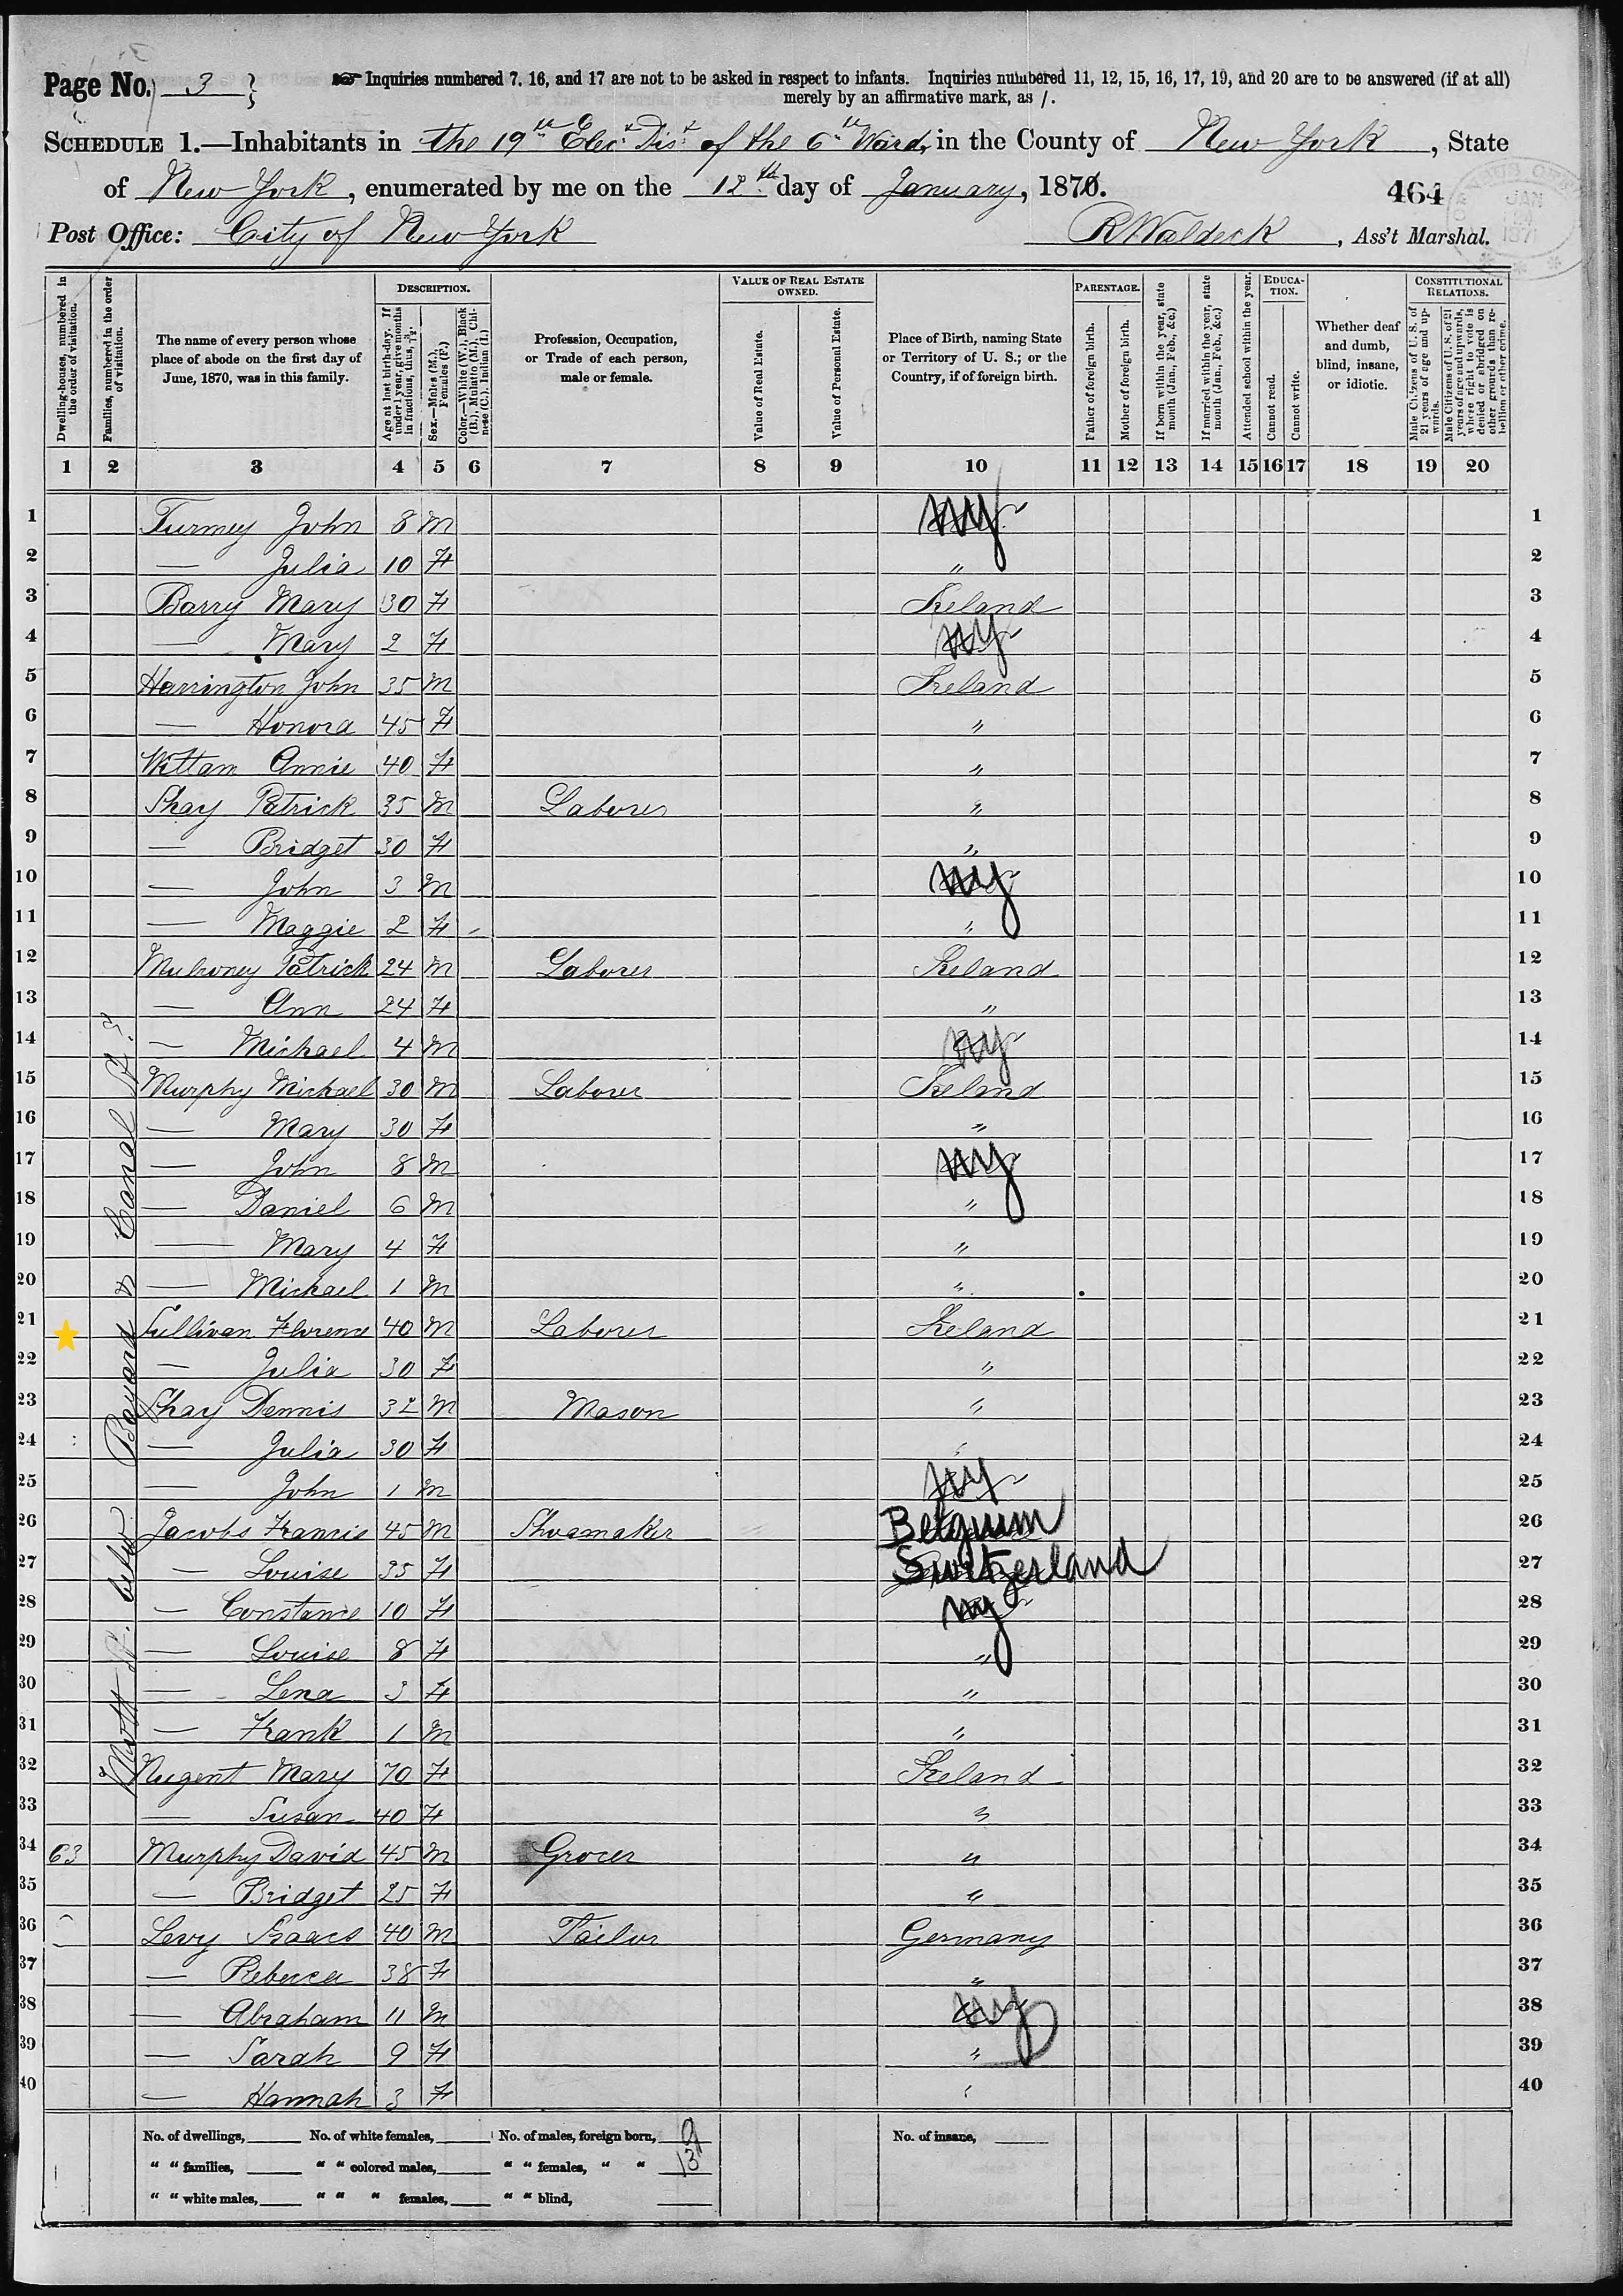 Page No. 3
Inquiries numbered 7, 16, and 17 are not to be asked in respect to infants. Inquiries numbered 11, 12, 15, 16, 17, 19, and 20 are to be answered (if at all)
merely by an affirmative mark, as /.
SCHEDULE 1.—Inhabitants in the 19th Elec. Dist. of the 6th Ward, in the County of New York, State
of New York, enumerated by me on the 12th day of January, 1870.
464
JAN
Post Office: City of New York
R Waldeck, Ass't Marshal.
Dwelling-houses, numbered in the order of visitation.
Families, numbered in the order of visitation.
The name of every person whose place of abode on the first day of June, 1870, was in this family.
DESCRIPTION.
Age at last birth-day. If under 1 year, give months in fractions, thus, 3/12.
Sex.—Males (M.), Females (F.)
Color.—White (W.), Black (B.), Mulatto (M.), Chinese (C.), Indian (I.)
Profession, Occupation, or Trade of each person, male or female.
VALUE OF REAL ESTATE OWNED.
Value of Real Estate.
Value of Personal Estate.
Place of Birth, naming State or Territory of U. S.; or the Country, if of foreign birth.
PARENTAGE.
Father of foreign birth.
Mother of foreign birth.
If born within the year, state month (Jan., Feb., &c.)
If married within the year, state month (Jan., Feb., &c.)
Attended school within the year.
EDUCATION.
Cannot read.
Cannot write.
Whether deaf and dumb, blind, insane, or idiotic.
CONSTITUTIONAL RELATIONS.
Male Citizens of U. S. of 21 years of age and upwards.
Male Citizens of U. S. of 21 years of age and upwards, whose right to vote is denied or abridged on other grounds than rebellion or other crime.
1 2 3 4 5 6 7 8 9 10 11 12 13 14 15 16 17 18 19 20
Mott St. betw. Bayard & Canal St.
1 Turmey John 8 M NY 1
2 — Julia 10 F " 2
3 Barry Mary 30 F Ireland 3
4 — Mary 2 F NY 4
5 Harrington John 35 M Ireland 5
6 — Honora 45 F " 6
7 Wittam Annie 40 F " 7
8 Shay Patrick 35 M Laborer " 8
9 — Bridget 30 F " 9
10 — John 3 M NY 10
11 — Maggie 2 F " 11
12 Mulroney Patrick 24 M Laborer Ireland 12
13 — Ann 24 F " 13
14 — Michael 4 M NY 14
15 Murphy Michael 30 M Laborer Ireland 15
16 — Mary 30 F " 16
17 — John 8 M NY 17
18 — Daniel 6 M " 18
19 — Mary 4 F " 19
20 — Michael 1 M " 20
21 Sullivan Florence 40 M Laborer Ireland 21
22 — Julia 30 F " 22
23 Shay Dennis 32 M Mason " 23
24 — Julia 30 F " 24
25 — John 1 M NY 25
26 Jacobs Francis 45 M Shoemaker Belgium 26
27 — Louise 35 F Switzerland 27
28 — Constance 10 F NY 28
29 — Louise 8 F " 29
30 — Lena 3 F " 30
31 — Frank 1 M " 31
32 Nugent Mary 70 F Ireland 32
33 — Susan 40 F " 33
34 63 Murphy David 45 M Grocer " 34
35 — Bridget 25 F " 35
36 Levy Isaacs 40 M Tailor Germany 36
37 — Rebecca 38 F " 37
38 — Abraham 11 M NY 38
39 — Sarah 9 F " 39
40 — Hannah 3 F " 40
No. of dwellings, No. of white females, No. of males, foreign born, 9 No. of insane,
" " families, " " colored males, " " females, " " 13
" " white males, " " " females, " " blind,